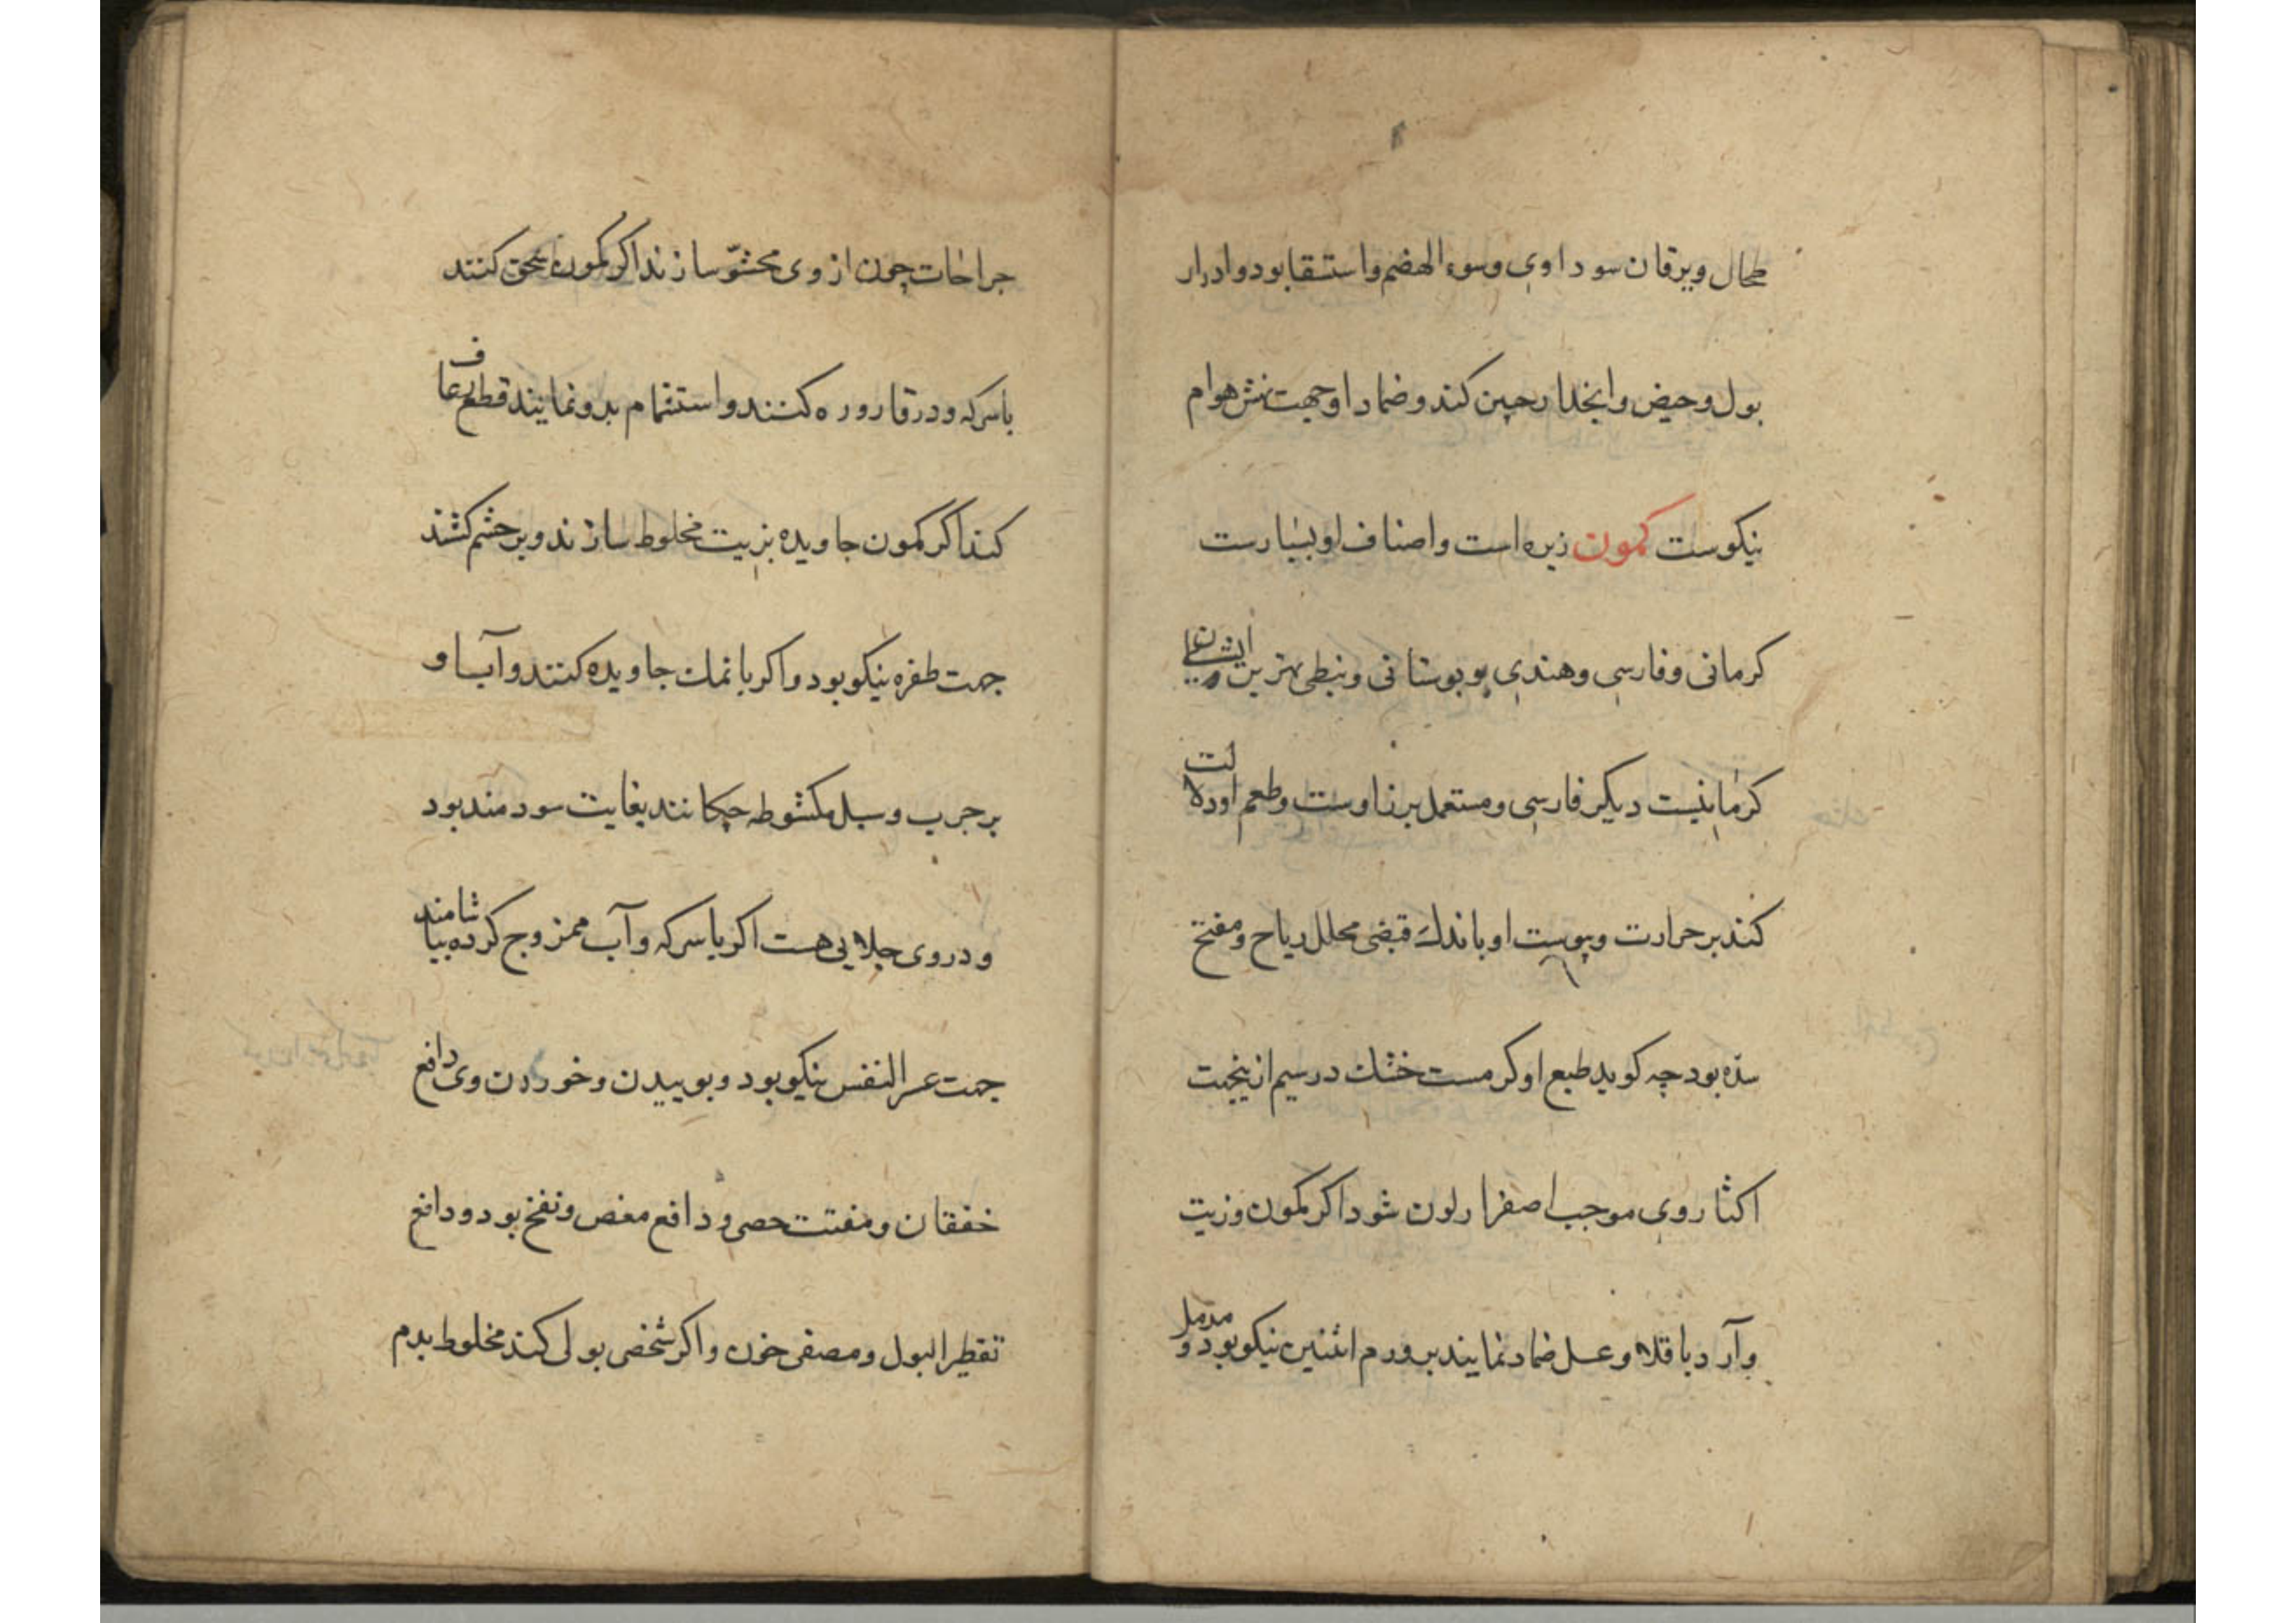 طحال ویرقان سوداوی وسوء الهضم واستسقا بود وادرار
بول وحیض وانحدار جنین کند وضماد او جهت نهش هوام
نیکوست کمون زیره است واصناف او بسیارست
کرمانی وفارسی وهندی و بوستانی ونبطی بهترین ایشان
کرمانیست دیکر فارسی ومستعمل برز اوست وطعم او دلالت
کند بر حرارت ویبوست او باندك قبضی محلل ریاح ومفتح
سده بود چه کوید طبع او کرمست خشك در سیم ازینجهت
اکثار وی موجب اصفرار لون شود اکر کمون وزیت
وآرد باقلاء وعسل ضماد نمایند بر ورم انثنین نیکو بود و مدمل
جراحات چون از وی محشو سازند اکر کمون سحق کنند
باسرکه ودر قاروره کنند واستشمام بدو نمایند قطع رعاف
کند اکر کمون جاویده بزیت مخلوط سازند وبر چشم کشند
جهت طفره نیکو بود واکر بانمك جاویده کنند وآب او
بر جرب وسبل مکشوطه چکانند بغایت سودمند بود
ودر وی جلایی هست اکر باسرکه وآب ممزوج کرده بیاشامند
جهت عسر النفس نیکو بود وبوییدن وخوردن وی دافع
خفقان ومفتت حصی و دافع مغص ونفخ بود ودافع
تقطیر البول ومصفی خون واکر شخصی بولی کند مخلوط بدم